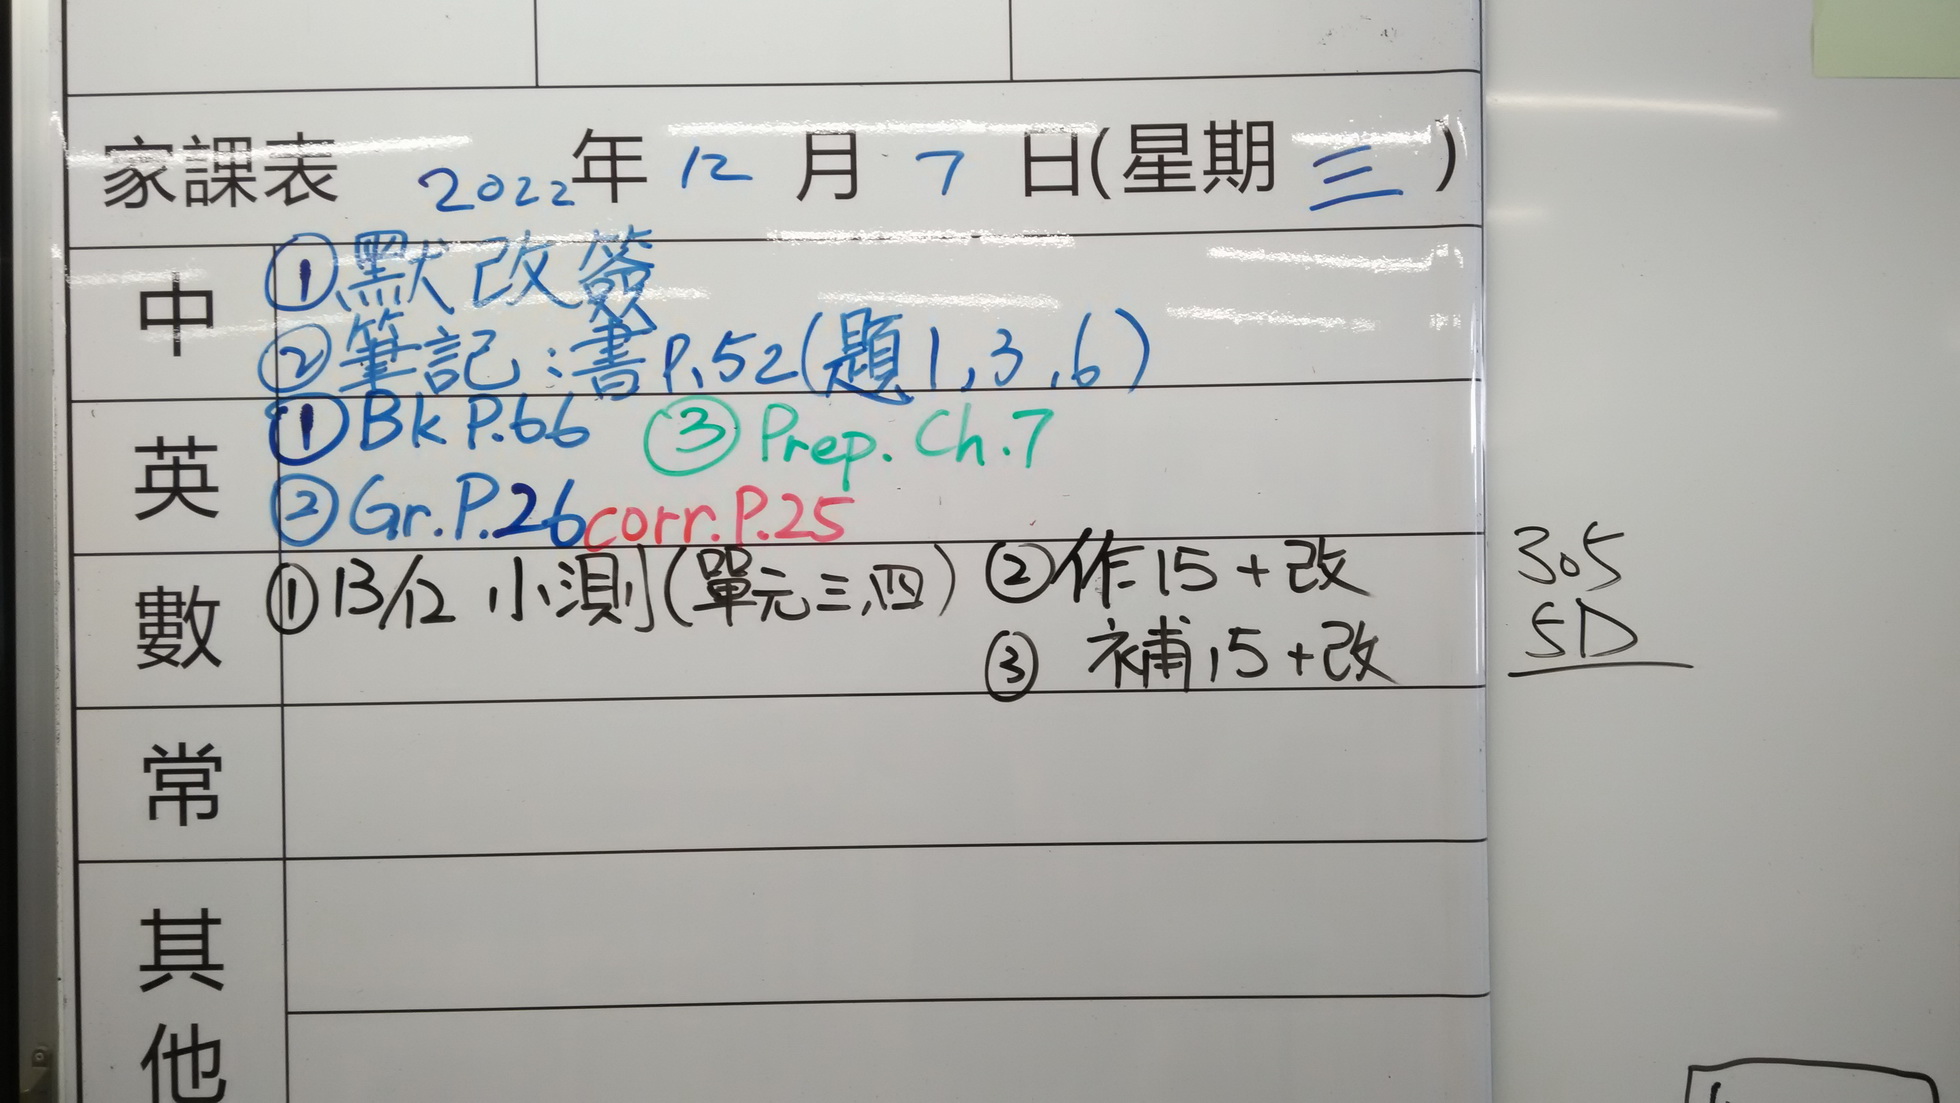 家課表 2022年 12 月 7 日(星期 三 )
中
①默改簽
②筆記:書P.52(題1,3,6)
英
①Bk P.66 ③Prep. Ch.7
②Gr.P.26corr.P.25
數
①13/12 小測(單元三,四) ②作15+改
③ 補15+改
常
其他
305
5D